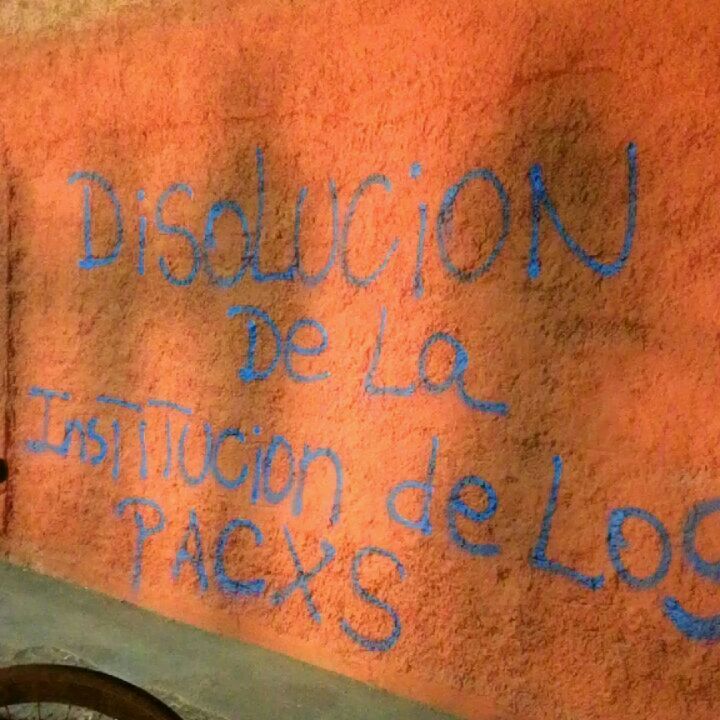 DiSOLUCiON
De La
InsTITUcion de Los
PACXS